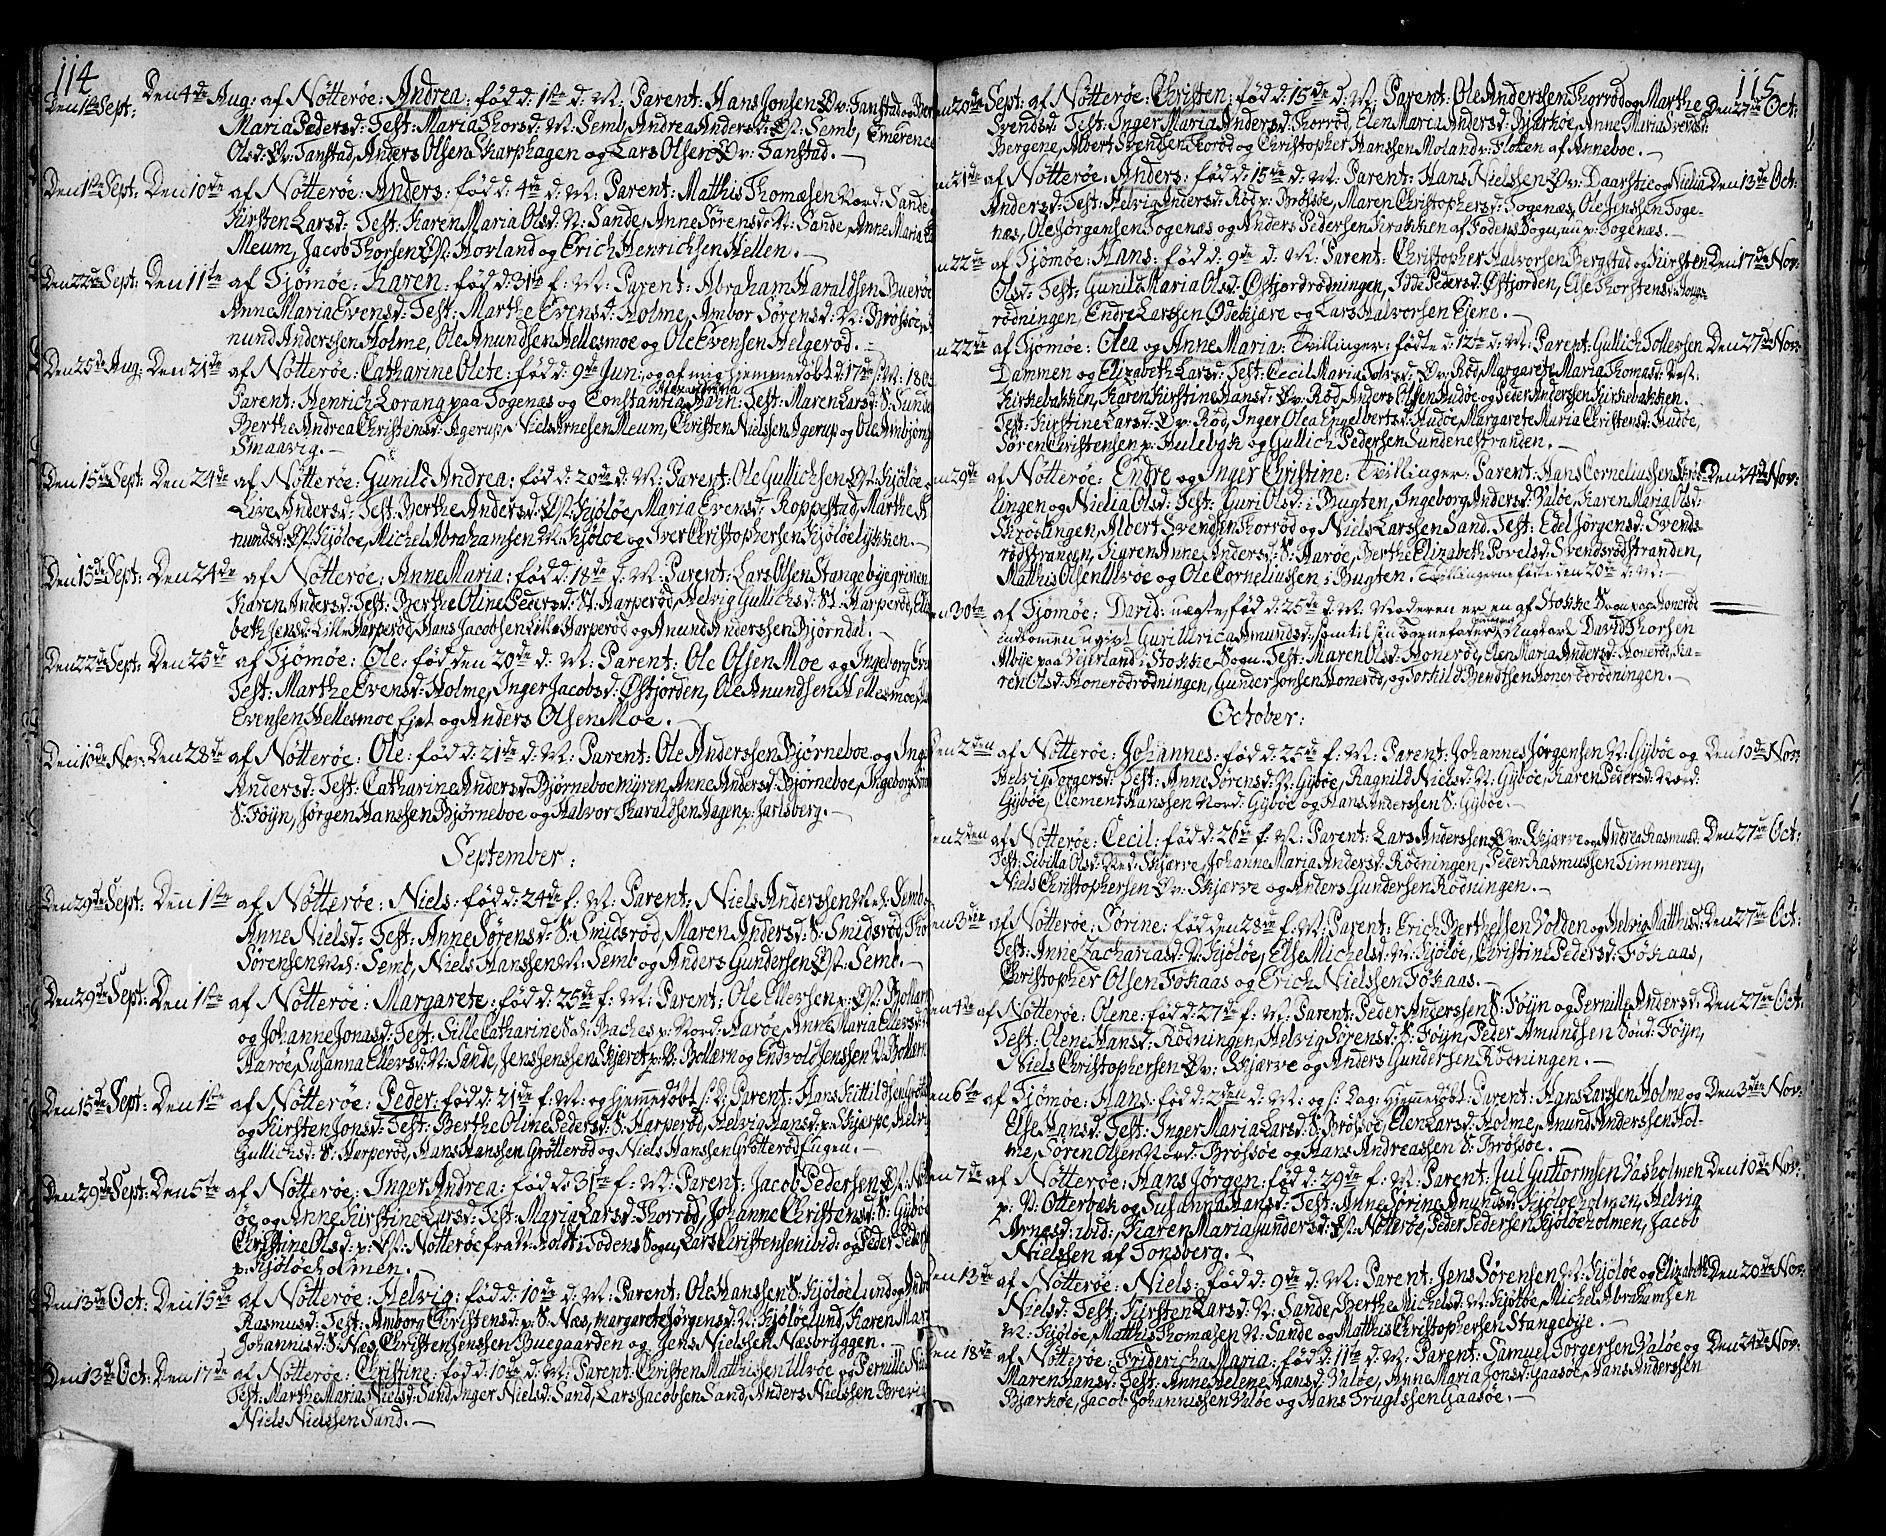 114
Den 1ste Sept: Den 4de Aug: af Nötterøe: Andrea: född: 1ste d: M: Parent: Hans Jonsen Øv: Tanstad og Ber
Maria Pedersd: Test: Maria Thorsd: N: Semb, Andrea Andersd: Øst: Semb, Emerence
Olsd: Øv: Tanstad, Anders Olsen Skarphagen og Lars Olsen Øv: Tanstad.
Den 1ste Sept: Den 10de af Nötterøe: Anders: född: 4de d: M: Parent: Matthis Thomæsen Nord: Sande
Kirsten Larsd: Test: Karen Maria Olsd: N: Sande, Anne Sörensd: N: Sande, Anne Maria
Meum, Jacob Thorsen Øst: Hovland og Erich Henrichsen Hellen.
Den 22de Sept: Den 11te af Tjömöe: Karen: född: 31te f: M: Parent: Abraham Haraldsen Bueröe
Anne Maria Evensd: Test: Marthe Evensd: Holme, Ambor Sörensd: N: Brösöe,
nund Anderssen Holme, Ole Anundsen Hellesmoe og Ole Evensen Helgeröd.
Den 25de Aug: Den 21de af Nötterøe: Catharine Olete: född: 9de Jun: og af mig hjemmedöbt d: 17de f: M: 180
Parent: Henrich Lorang paa Togenæs og Constantia Alexandrina Hahn: Test: Maren Larsd: S: Sunde
Berthe Andrea Christensd: Agerup, Niels Arnesen Meum, Christen Nielssen Agerup og Ole Ambjörns
Smaavig.
Den 15de Sept: Den 24de af Nötterøe: Gunild Andrea: född: 20de d: M: Parent: Ole Gullichsen Øst: Kjölöe
Live Andersd: Test: Berthe Andersd: Øst: Kjölöe, Maria Evensd: Roppestad, Marthe
nundsd: Øst: Kjölöe, Michel Abrahamsen N: Kjölöe og Iver Christophersen Kjölöelykken.
Den 15de Sept: Den 24de af Nötterøe: Anne Maria: född: 18de d: M: Parent: Lars Olsen Stangebyegrinen
Karen Andersd: Test: Berthe Oline Pedersd: St: Harperöd, Helvig Gullichsd: St: Harperöd, Eli
beth Jensd: Lille Harperöd, Hans Jacobsen Lille Harperöd og Anund Anderssen Bjørndal.
Den 22de Sept: Den 25de af Tjömöe: Ole: född den 20de d: M: Parent: Ole Olsen Moe og Ingeborg
Test: Marthe Evensd: Holme, Inger Jacobsd: Østjorden, Ole Anundsen Hellesmoe,
Evensen Hellesmoe Ejet og Anders Olsen Moe.
Den 10de Nov: Den 28de af Nötterøe: Ole: född: 21de d: M: Parent: Ole Anderssen Bjørneboe og Inge
Andersd: Test: Catharine Andersd: Bjørneboemyren, Anne Andersd: Bjørneboe, Ingeborg
S: Föyn, Jörgen Hanssen Bjørneboe og Halvor Haraldsen Hagen p: Jarlsberg.
September:
Den 29de Sept: Den 1ste af Nötterøe: Niels: född: 24de f: M: Parent: Niels Anderssen Mel: Semb
Anne Nielsd: Test: Anne Sörensd: S: Smidsröd, Maren Andersd: S: Smidsröd, Tho
Sörensen Mel: Semb, Niels Hanssen N: Semb og Anders Gundersen Øst: Semb.
Den 29de Sept: Den 1ste af Nötterøe: Margarete: född: 25de f: M: Parent: Ole Ellevsen p: Øst: Bollærn
og Johanne Jonasd: Test: Sille Catharine Sal: Baches p: Nord: Aaröe, Anne Maria Ellevsd:
Aaröe, Susanna Ellevsd: N: Sande, Jens Jenssen Skjæret p: V: Bollærn og Endvold Jenssen V: Bollærn
Den 15de Sept: Den 1ste af Nötterøe: Peder: född: 21de f: M: og hjemmedöbt f: D: Parent: Hans Kittildsen
og Kirsten Jonsd: Test: Berthe Oline Pedersd: S: Harperöd, Helvig Hansd: p: Skjerpe, Helvi
Gullichsd: S: Harperöd, Hans Hanssen Grötteröd og Niels Hanssen Grötteröd Eugen.
Den 29de Sept: Den 5te af Nötterøe: Inger Andrea: född: 31te f: M: Parent: Jacob Pedersen Øst: Nöt
öe og Anne Kirstine Larsd: Test: Maria Larsd: Thorröd, Johanne Christensd: S: Gyböe
Christine Olsd: p: Øst: Nötteröe fra N: Holt i Todens Sogn, Lars Christensen ibid: og Peder Peders
p: Kjölöeholmen.
Den 13de Oct: Den 15de af Nötterøe: Helvig: född: 10de d: M: Parent: Ole Hanssen S: Kjölöelund og And
Rasmusd: Test: Amborg Christensd: p: S: Næs, Margarete Jörgensd: N: Kjölöelund, Karen Mar
Johannisd: S: Næs, Christen Jenssen Buegaarden og Jens Nielssen Næsbryggen.
Den 13de Oct: Den 17de af Nötterøe: Christine: född: 10de d: M: Parent: Christen Matthissen Ulvöe og Pernille Niel
Test: Marthe Maria Nielsd: Sand, Inger Nielsd: Sand, Lars Jacobsen Sand, Anders Nielssen Brevig
Niels Nielssen Sand.
115
en 20de Sept: af Nötterøe: Christen: född: 15de d: M: Parent: Ole Anderssen Thorröd og Marthe Den 27de Oct:
Svendsd: Test: Inger Maria Andersd: Thorröd, Elen Maria Andersd: Bjærköe, Anne Maria Svendsd:
Bergene, Albert Svendsen Toröd og Christopher Hanssen Moland v: Floten af Anneboe.
en 21de af Nötterøe: Anders: född: 15de d: M: Parent: Hans Nielssen Øv: Daarstie og Nielia Den 13de Oct:
Andersd: Test: Helvig Andersd: Röd p: Brösöe, Maren Christophersd: Togenæs, Ole Jenssen Toge-
næs, Ole Jörgensen Togenæs og Anders Pedersen Krakken af Todens Sogn, nu p: Togenæs.
en 22de af Tjömöe: Hans: född: 9de d: M: Parent: Christopher Halvorsen Bergstad og Kirsten Den 17de Nov:
Olsd: Test: Gunild Maria Olsd: Østjordrödningen, Idde Pedersd: Østjorden, Else Thorstensd:
rödningen, Endre Larssen Ødekjære og Lars Halvorsen Ejene.
en 22de af Tjömöe: Olea og Anne Maria: Tvillinger: födte d: 12te d: M: Parent: Gullich Tollevsen Den 27de Nov:
Dammen og Elizabeth Larsd: Test: Cecil Maria Tolvsd: Øv: Röd, Margarete Maria Thomasd: Vest:
Kirkebakken, Karen Kirstine Hansd: Øv: Röd, Anders Olsen Hudöe og Peder Anderssen Kirkebakken.
Test: Kirstine Larsd: Øv: Röd, Inger Olea Engelbertsd: Hudöe, Margarete Maria Christensd: Hudöe,
Sören Christensen p: Hulebak og Gullich Pedersen Sundenestranden.
en 29de af Nötterøe: Endre og Inger Christine: Tvillinger: Parent: Hans Corneliussen Skrös Den 24de Nov:
lingen og Nielia Olsd: Test: Guri Olsd: i Bugten, Ingeborg Andersd: Valöe, Karen Maria Olsd:
Skröslingen, Albert Svendsen Thorröd og Niels Larssen Sand. Test: Edel Jörgensd: Svends-
rödstranden, Kjgren Anne Andersd: S: Aaröe, Berthe Elizabeth Povelsd: Svendsrödstranden,
Matthis Olsen Ulvöe og Ole Corneliussen i Bugten. Tvillingerne födte den 20de d: M:
en 30te af Tjömöe: David: uægte, född: 25de d: M: Moderen er en af Stokke Sogn paa Honeröd
indkommen ugivt Guri Ulrica Amundsd: som til sin Barnefader Ungkarl David Thorsen
Albye paa Vejerland i Stokke Sogn. Test: Maren Olsd: Honeröd, Elen Maria Andersd: Honeröd, Ka-
ren Olsd: Honerödrödningen, Gunder Jonsen Honeröd, og Torkild Bjendtsen Honerödrödningen.
October:
en 2den af Nötterøe: Johannes: född: 25de f: M: Parent: Johannes Jörgensen N: Gyböe og Den 10de Nov:
Helvig Torgersd: Test: Anne Sörensd: N: Gyböe, Ragnild Nielsd: N: Gyböe, Karen Pedersd: Nord:
Gyböe, Clement Hanssen Nord: Gyböe og Hans Anderssen S: Gyböe.
en 2den af Nötterøe: Cecil: född: 26de f: M: Parent: Lars Anderssen Øv: Skjærve og Andrea Rasmusd: Den 27de Oct:
Test: Sibilla Olsd: Ned: Skjærve, Johanne Maria Andersd: Rödningen, Peder Rasmussen Timmerug,
Niels Christophersen Øv: Skjærve og Anders Gundersen Rödningen.
en 3die af Nötterøe: Sörine: född den 28de f: M: Parent: Erich Berthelsen Volden og Helvig Matthisd: Den 27de Oct:
Test: Anne Zachariasd: N: Kjölöe, Else Michelsd: N: Kjölöe, Christine Pedersd: Föhaas,
Christopher Olsen Föhaas og Erich Nielssen Föhaas.
en 4de af Nötterøe: Olene: född: 27de f: M: Parent: Peder Anderssen S: Föyn og Pernille Andersd: Den 27de Oct:
Test: Olene Hansd: Rödningen, Helvig Sörensd: S: Föyn, Peder Amundsen Sönd: Föyn,
Niels Christophersen Øv: Skjærve og Anders Gundersen Rödningen.
en 6te af Tjömöe: Hans: född: 2den d: M: og f: Dag: hjemmedöbt: Parent: Hans Larssen Holme og Den 3die Nov:
Else Hansd: Test: Inger Maria Larsd: S: Brösöe, Elen Larsd: Holme, Anund Anderssen Hol-
me, Sören Olsen Nord: Brösöe og Hans Andreassen S: Brösöe.
en 7de af Nötterøe: Hans Jörgen: född: 29de f: M: Parent: Jul Guttormsen Vasholmen Den 10de Nov:
p: V: Otterbæk og Susanna Hansd: Test: Anne Sörine Anundsd: Kjölöeholmen, Helvig
Arnesd: ibid:, Karen Maria Gundersd: Øst: Nötteröe, Peder Pedersen Kjölöeholmen, Jacob
Nielssen af Tonsberg.
en 13de af Nötterøe: Niels: född: 9de d: M: Parent: Jens Sörensen N: Kjölöe og Elizabeth Den 20de Nov:
Nielsd: Test: Kirsten Larsd: N: Sande, Berthe Michelsd: N: Kjölöe, Michel Abrahamsen
N: Kjölöe, Matthis Thomæsen N: Sande og Matthis Christophersen Stangebye.
en 18de af Nötterøe: Fridericha Maria: född: 11te d: M: Parent: Samuel Torgersen Valöe og Den 24de Nov:
Maren Hansd: Test: Anne Helene Hansd: Valöe, Anne Maria Jonsd: Gaasöe, Hans Anderssen
Bjærköe, Jacob Johannissen Valöe og Hans Truglssen Gaasöe.